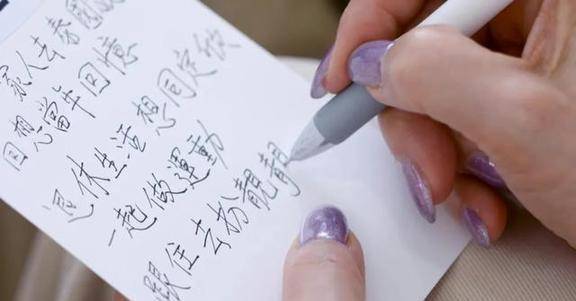 家人去泰國
回想當年回憶
退休生活想同定欣
一起做運動
跟住去扮靚靚